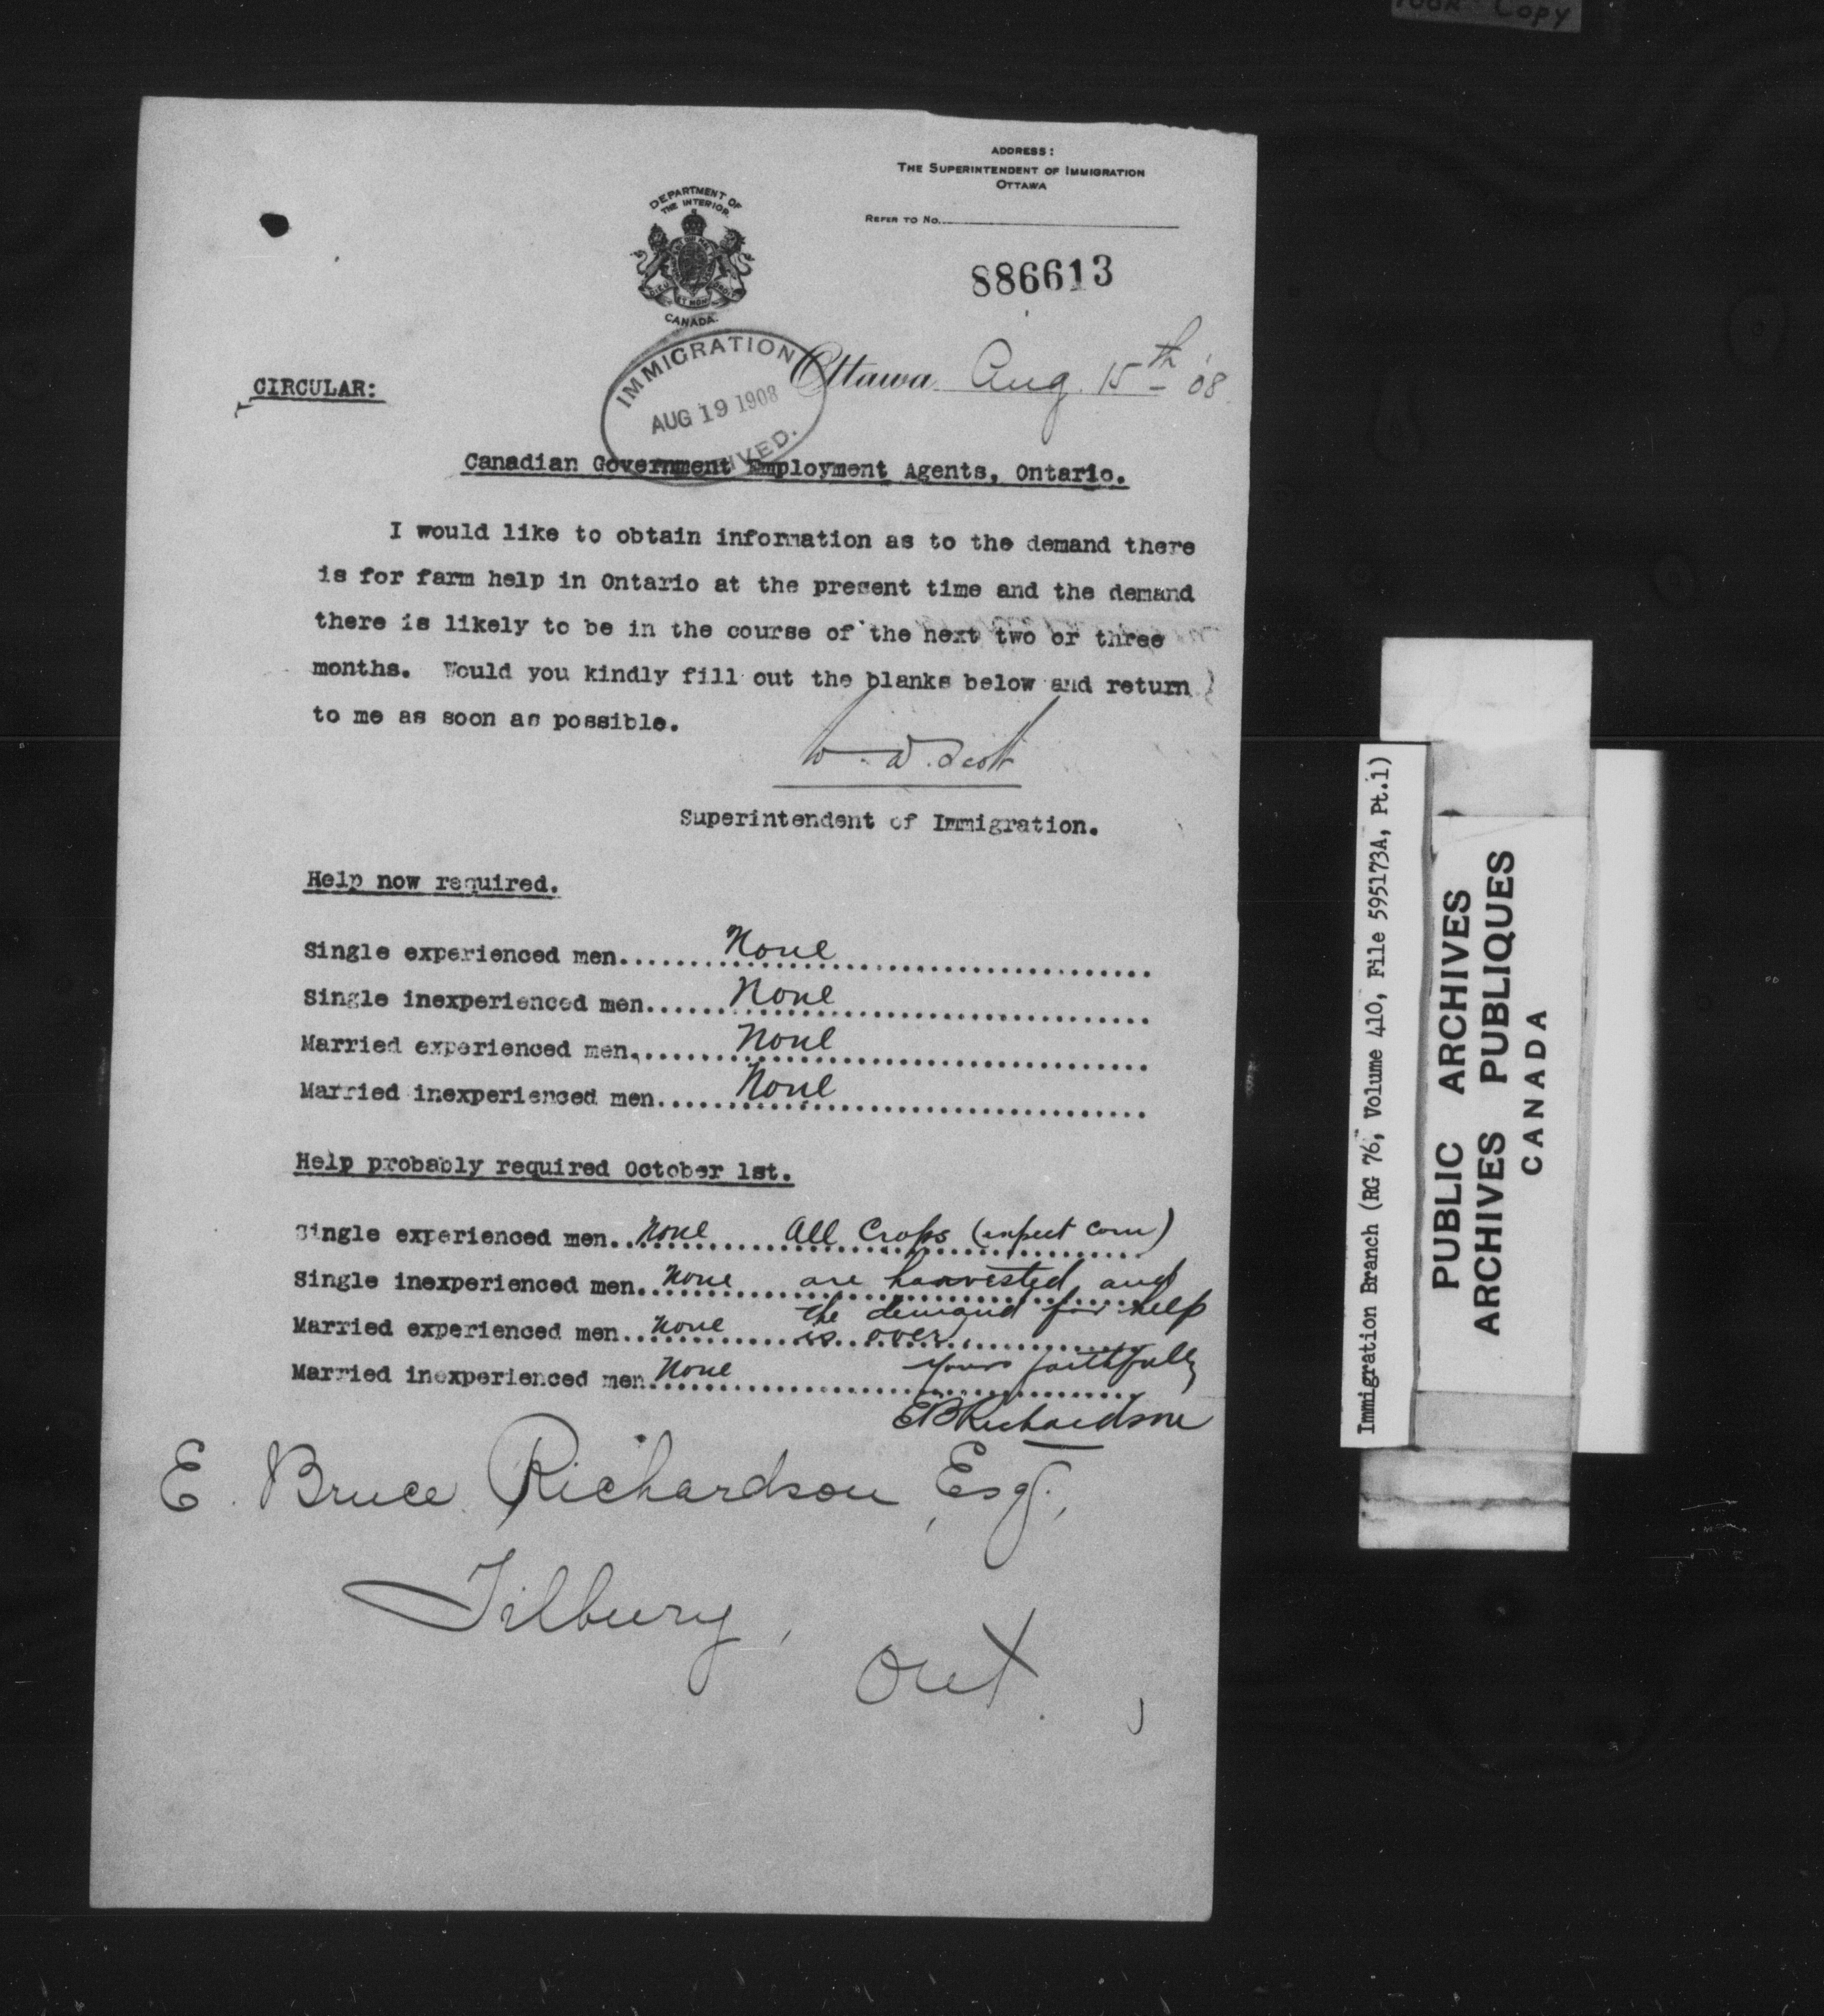 Poor Copy
ADDRESS:
THE SUPERINTENDENT OF IMMIGRATION
OTTAWA
DEPARTMENT OF
THE INTERIOR
CANADA.
REFER TO NO.
886613
IMMIGRATION
AUG 19 1908
Ottawa Aug. 15th '08
CIRCULAR:
Canadian Government Employment Agents, Ontario.
I would like to obtain information as to the demand there
is for farm help in Ontario at the present time and the demand
there is likely to be in the course of the next two or three
months. Would you kindly fill out the blanks below and return
to me as soon as possible.
W. D. Scott
Superintendent of Immigration.
Help now required.
Single experienced men...... None
Single inexperienced men...... None
Married experienced men...... None
Married inexperienced men..... None
Help probably required October 1st.
Single experienced men.. None All Crops (expect corn)
Single inexperienced men. None are harvested, and
the demand for help
Married experienced men.. None is over.
Married inexperienced men. None Yours faithfully
EBRichardson
E. Bruce Richardson, Esq.,
Tilbury,
Ont.
Immigration Branch (RG 76, Volume 410, File 595173A, Pt.1)
PUBLIC ARCHIVES
ARCHIVES PUBLIQUES
CANADA